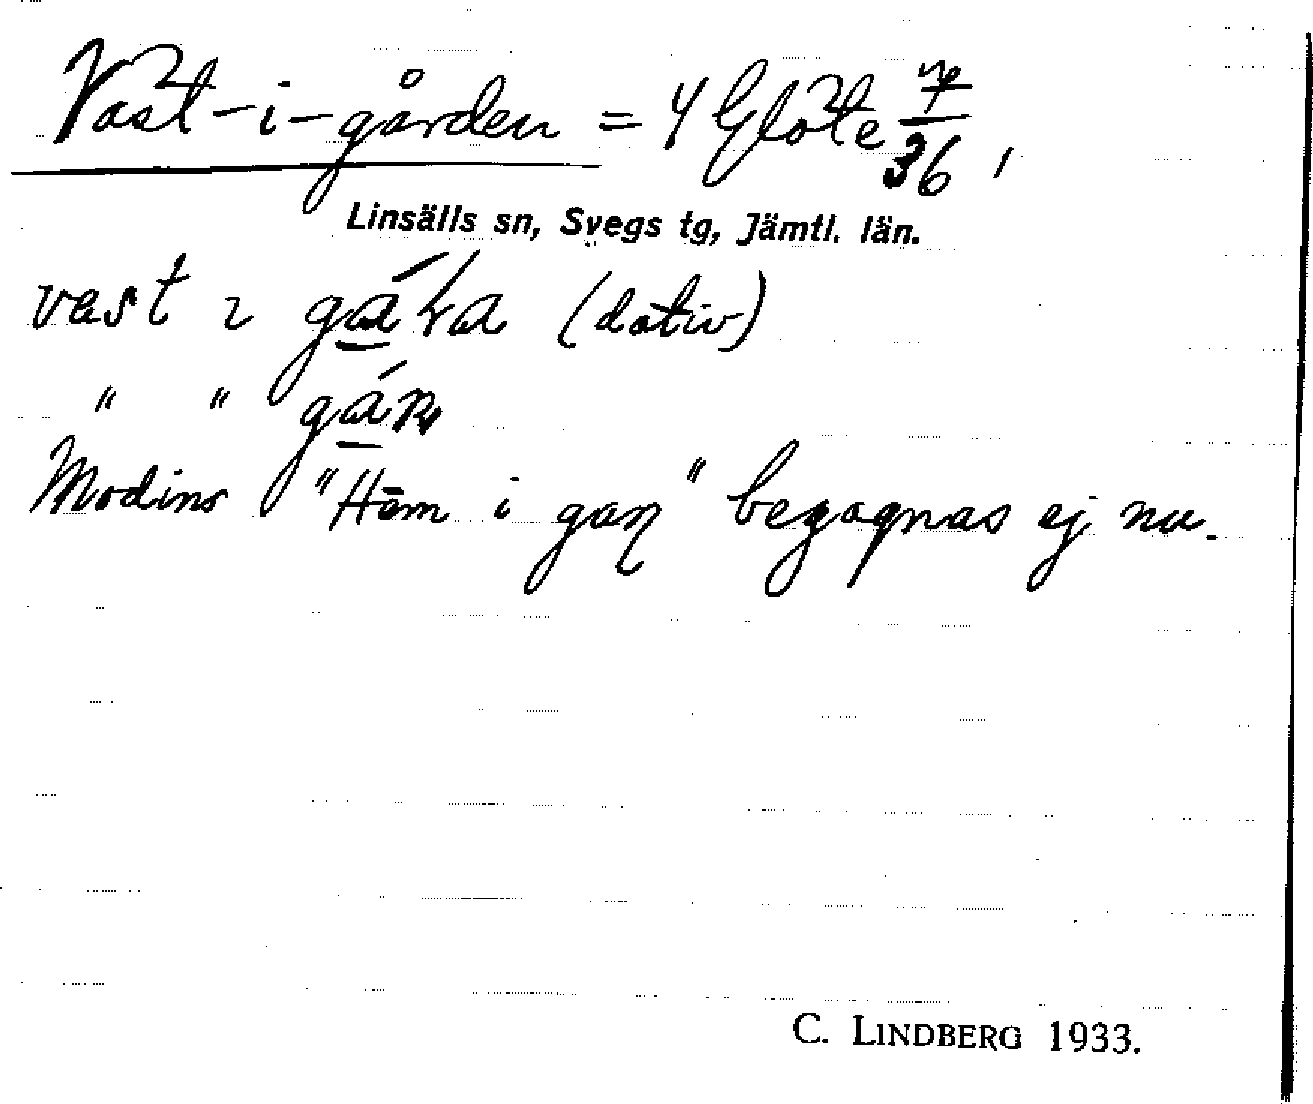 Väst-i-gården = 4 Glöte 7/36,
Linsälls sn, Svegs tg, Jämtl. län.
vest ɩ gára (dativ)
" " gán
Modins "Höm i gaŋ" begagnas ej nu.
C. LINDBERG 1933.